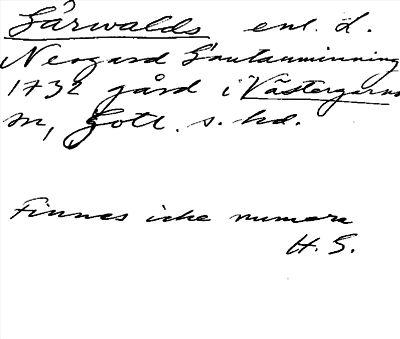 Särwalds enl. d.
Neogard Gautauminning
1732 gård i Västergarns
sn, Gotl. s. hd.
Finnes icke numera
H. S.